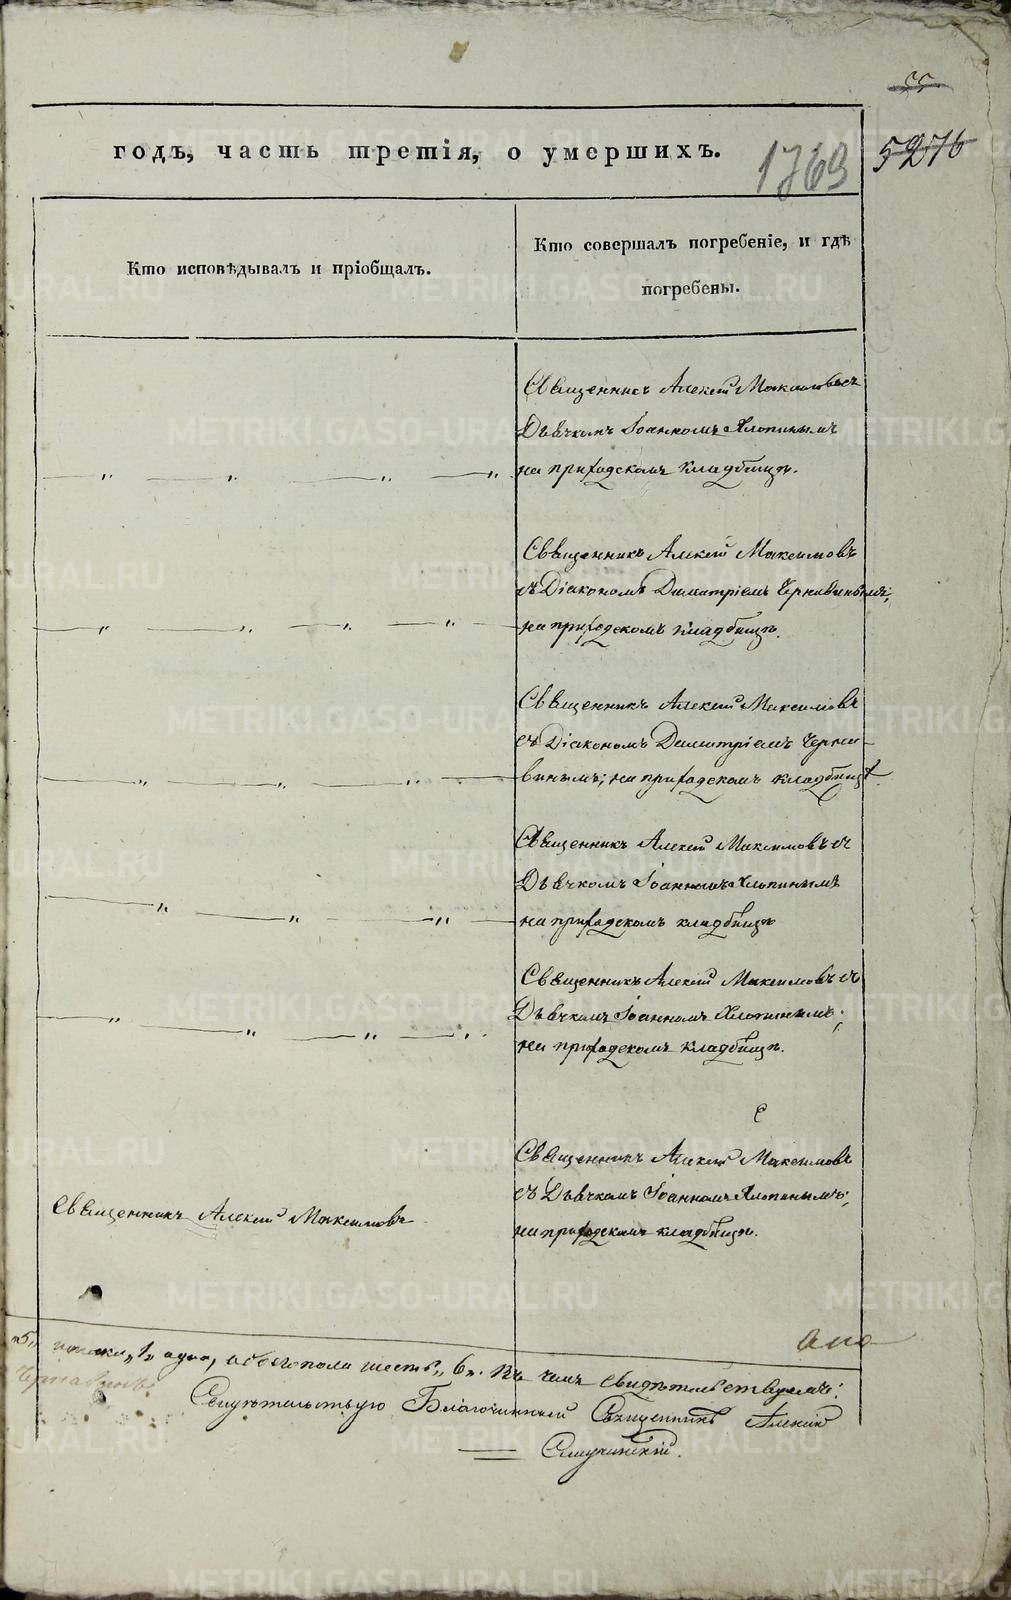 55
годъ, часть третія, о умершихъ.
1763
5276
Кто исповѣдывалъ и пріобщалъ.
Кто совершалъ погребеніе, и гдѣ
погребены.
Священникъ Алексій Максимовъ съ
Дьячкомъ Іоанномъ Хлопинымъ
на приходскомъ кладбищѣ.
Священникъ Алексій Максимовъ
съ Діакономъ Димитріемъ Чернавинымъ;
на приходскомъ кладбищѣ.
Священникъ Алексій Максимовъ
съ Діакономъ Димитріемъ Черна-
винымъ; на приходскомъ кладбищѣ
Священникъ Алексій Максимовъ съ
Дьячкомъ Іоанномъ Хлопинымъ
на приходскомъ кладбищѣ
Священникъ Алексій Максимовъ съ
Дьячкомъ Іоанномъ Хлопинымъ;
на приходскомъ кладбищѣ.
Священникъ Алексій Максимовъ
съ Дьячкомъ Іоанномъ Хлопинымъ;
на приходскомъ кладбищѣ.
Священникъ Алексій Максимовъ
"5" "1" одна, обоего пола шесть "6". Въ чемъ свидѣтельствуемъ:
Чернавинъ.
Свидѣтельствую Благочинный Священникъ Алексій
METRIKI.GASO-URAL.RU